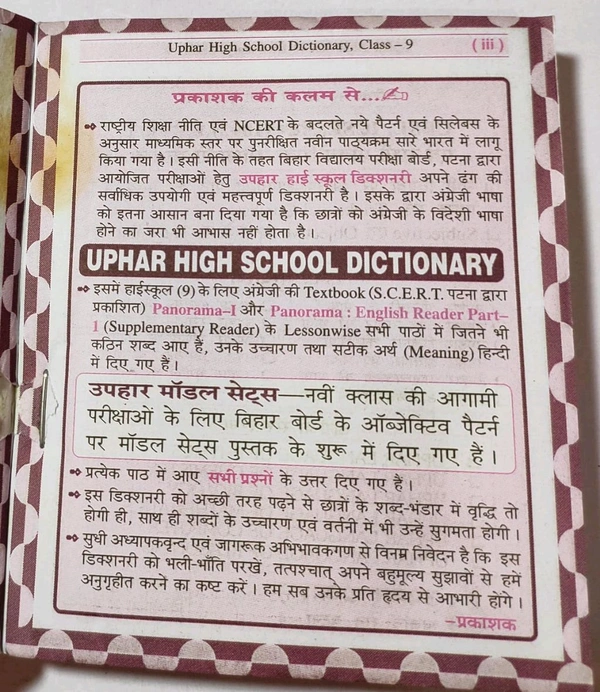 Uphar High School Dictionary, Class – 9 ( iii )
प्रकाशक की कलम से...✍
➻ राष्ट्रीय शिक्षा नीति एवं NCERT के बदलते नये पैटर्न एवं सिलेबस के
अनुसार माध्यमिक स्तर पर पुनरीक्षित नवीन पाठ्यक्रम सारे भारत में लागू
किया गया है। इसी नीति के तहत बिहार विद्यालय परीक्षा बोर्ड, पटना द्वारा
आयोजित परीक्षाओं हेतु उपहार हाई स्कूल डिक्शनरी अपने ढंग की
सर्वाधिक उपयोगी एवं महत्त्वपूर्ण डिक्शनरी है। इसके द्वारा अंग्रेजी भाषा
को इतना आसान बना दिया गया है कि छात्रों को अंग्रेजी के विदेशी भाषा
होने का जरा भी आभास नहीं होता है।
UPHAR HIGH SCHOOL DICTIONARY
➻ इसमें हाईस्कूल (9) के लिए अंग्रेजी की Textbook (S.C.E.R.T. पटना द्वारा
प्रकाशित) Panorama–I और Panorama : English Reader Part–
1 (Supplementary Reader) के Lessonwise सभी पाठों में जितने भी
कठिन शब्द आए हैं, उनके उच्चारण तथा सटीक अर्थ (Meaning) हिन्दी
में दिए गए हैं।
उपहार मॉडल सेट्स—नवीं क्लास की आगामी
परीक्षाओं के लिए बिहार बोर्ड के ऑब्जेक्टिव पैटर्न
पर मॉडल सेट्स पुस्तक के शुरू में दिए गए हैं।
➻ प्रत्येक पाठ में आए सभी प्रश्नों के उत्तर दिए गए हैं।
➻ इस डिक्शनरी को अच्छी तरह पढ़ने से छात्रों के शब्द-भंडार में वृद्धि तो
होगी ही, साथ ही शब्दों के उच्चारण एवं वर्तनी में भी उन्हें सुगमता होगी।
➻ सुधी अध्यापकवृन्द एवं जागरूक अभिभावकगण से विनम्र निवेदन है कि इस
डिक्शनरी को भली-भाँति परखें, तत्पश्चात् अपने बहुमूल्य सुझावों से हमें
अनुगृहीत करने का कष्ट करें। हम सब उनके प्रति हृदय से आभारी होंगे।
–प्रकाशक